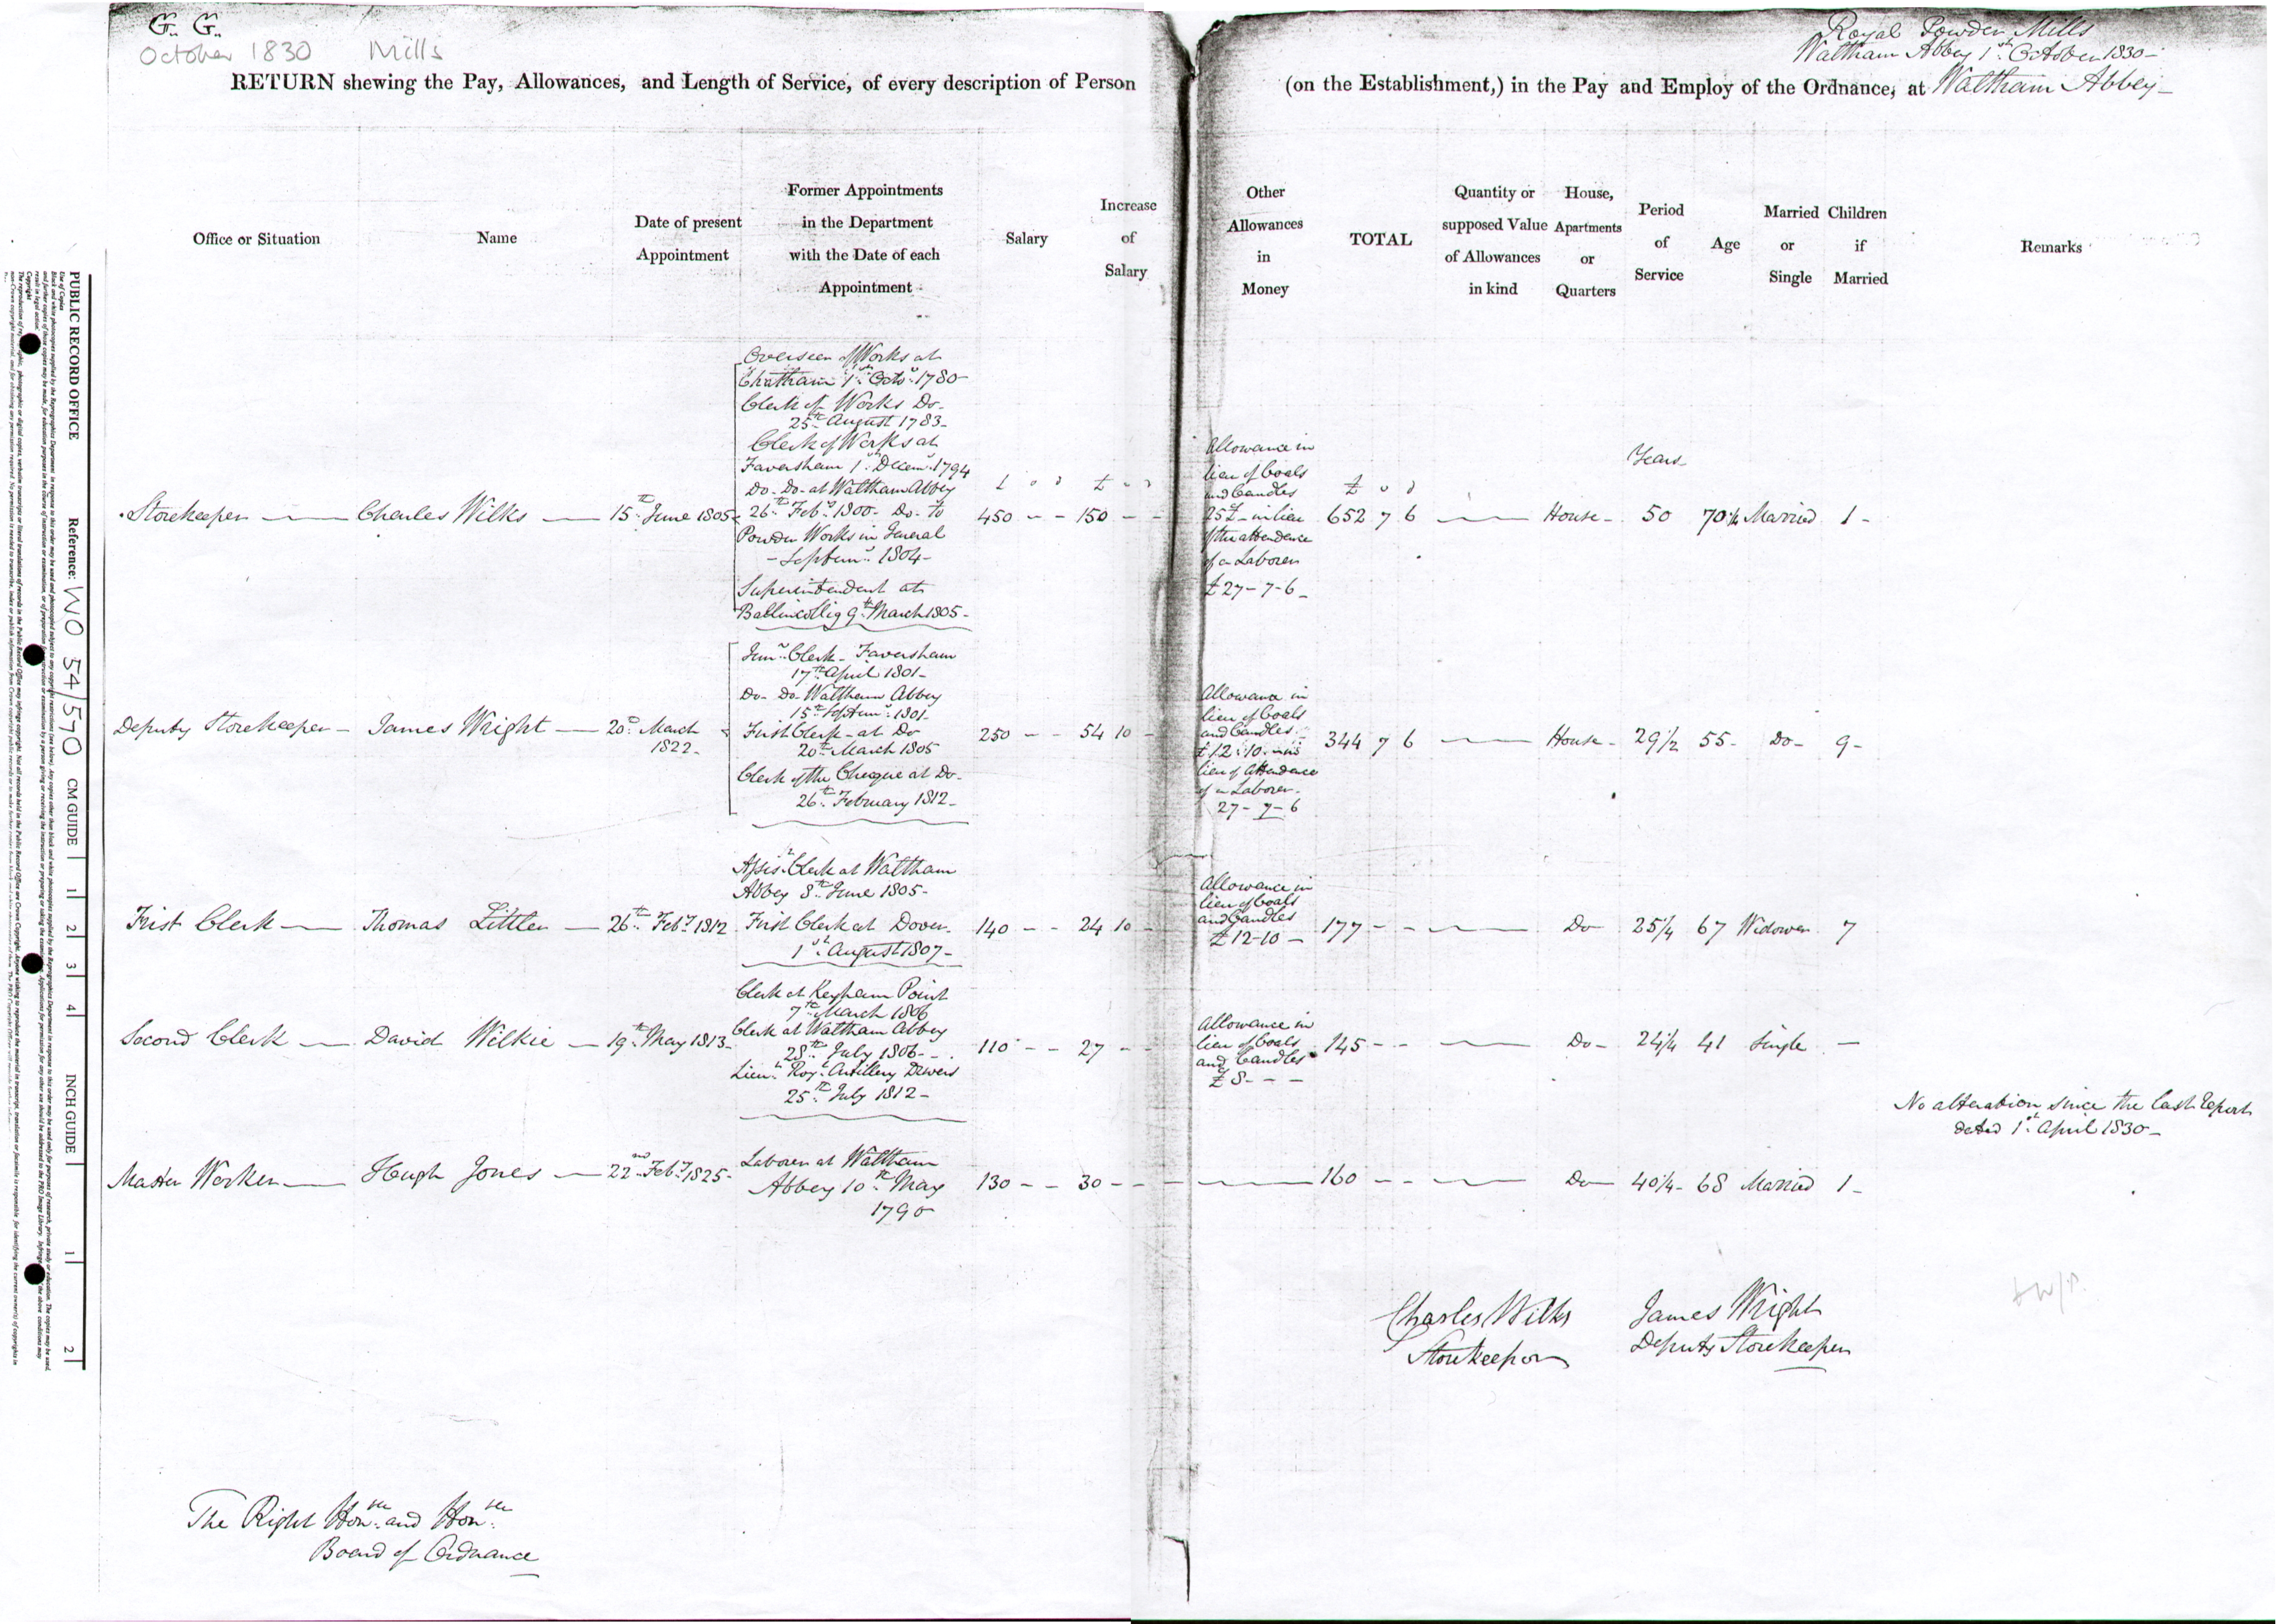 G. G.
October 1830 Mills
Royal Powder Mills
Waltham Abbey 1st October 1830
RETURN shewing the Pay, Allowances, and Length of Service, of every description of Person (on the Establishment,) in the Pay and Employ of the Ordnance, at Waltham Abbey
Office or Situation
Name
Date of present
Appointment
Former Appointments
in the Department
with the Date of each
Appointment
Salary
Increase
of
Salary
Other
Allowances
in
Money
TOTAL
Quantity or
supposed Value
of Allowances
in kind
House,
Apartments
or
Quarters
Period
of
Service
Age
Married
or
Single
Children
if
Married
Remarks
Storekeeper — Charles Wilks — 15th June 1805
Overseer of Works at
Chatham 1st Octr. 1780
Clerk of Works Do.
25th August 1783
Clerk of Works at
Faversham 1st Decemr. 1794
Do. Do. at Waltham Abbey
26th Feby. 1800 Do. to
Powder Works in General
Septemr. 1804
Superintendent at
Ballincollig 9th March 1805
£ s d
450 - -
£ s d
150 - -
Allowance in
lieu of Coals
and Candles
25£ in lieu
of the attendance
of a Laborer
£27-7-6
£ s d
652 7 6
House
Years
50
70 1/4
Married
1
Deputy Storekeeper — James Wright — 20th March
1822
Junr. Clerk - Faversham
17th April 1801
Do. Do. Waltham Abbey
15th Septemr. 1801
First Clerk at Do
20th March 1805
Clerk of the Cheque at Do.
26th February 1812
250 - -
54 10 -
Allowance in
lieu of Coals
and Candles
£12:10 in
lieu of Attendance
of a Laborer
27-7-6
344 7 6
House
29 1/2
55
Do
9
First Clerk — Thomas Littler — 26th Feby. 1812
Assist. Clerk at Waltham
Abbey 8th June 1805
First Clerk at Dover
1st August 1807
140 - -
24 10 -
Allowance in
lieu of Coals
and Candles
£12-10-
177 - -
Do
25 1/4
67
Widower
7
Second Clerk — David Wilkie — 19th May 1813
Clerk at Keyham Point
7th March 1806
Clerk at Waltham Abbey
28th July 1806
Lieut. Roy. Artillery Drivers
25th July 1812
110 - -
27 - -
Allowance in
lieu of Coals
and Candles
£8 - -
145 - -
Do
24 1/4
41
Single
—
No alteration since the last Report
dated 1st April 1830
Master Worker — Hugh Jones — 22nd Feby. 1825
Laborer at Waltham
Abbey 10th May
1790
130 - -
30 - -
160 - -
Do
40 1/4
68
Married
1
Charles Wilks
Storekeeper
James Wright
Deputy Storekeeper
The Right Honble. and Honble.
Board of Ordnance
PUBLIC RECORD OFFICE
Reference: WO 54/570
CM GUIDE
1
2
3
4
INCH GUIDE
1
2